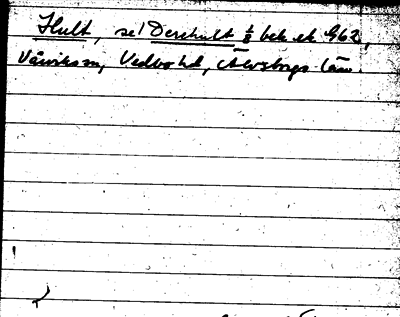 Hult, se! Dersehult 1/8 bek ek 962,
Vårviks sn, Vedbo hd, Älvsborgs län.